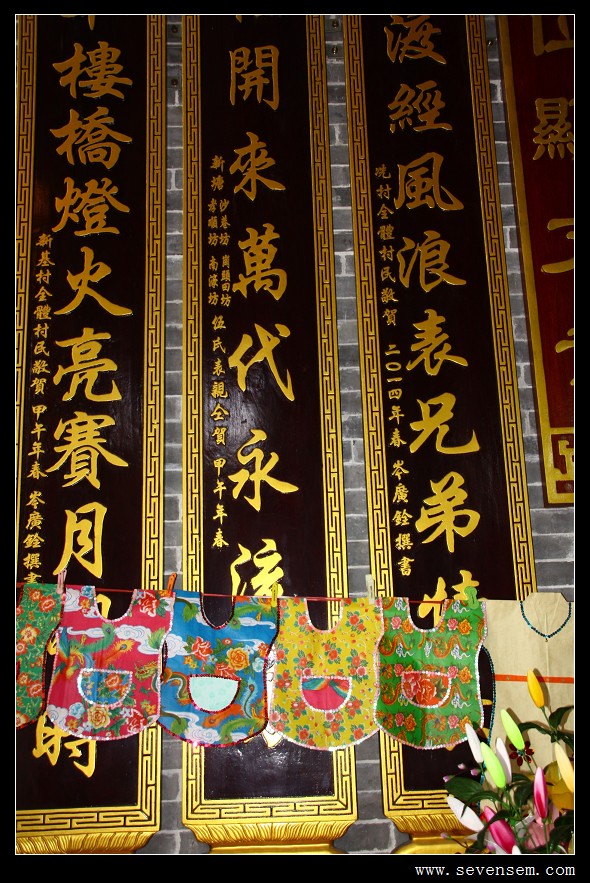 顯
渡經風浪表兄弟
冼村全體村民敬賀 二〇一四年春 岑廣銓撰書
開來萬代永流
新塘 伍氏表親仝賀 甲午年春
樓橋燈火亮賽月
時
新基村全體村民敬賀 甲午年春 岑廣銓撰書
www.sevensem.com